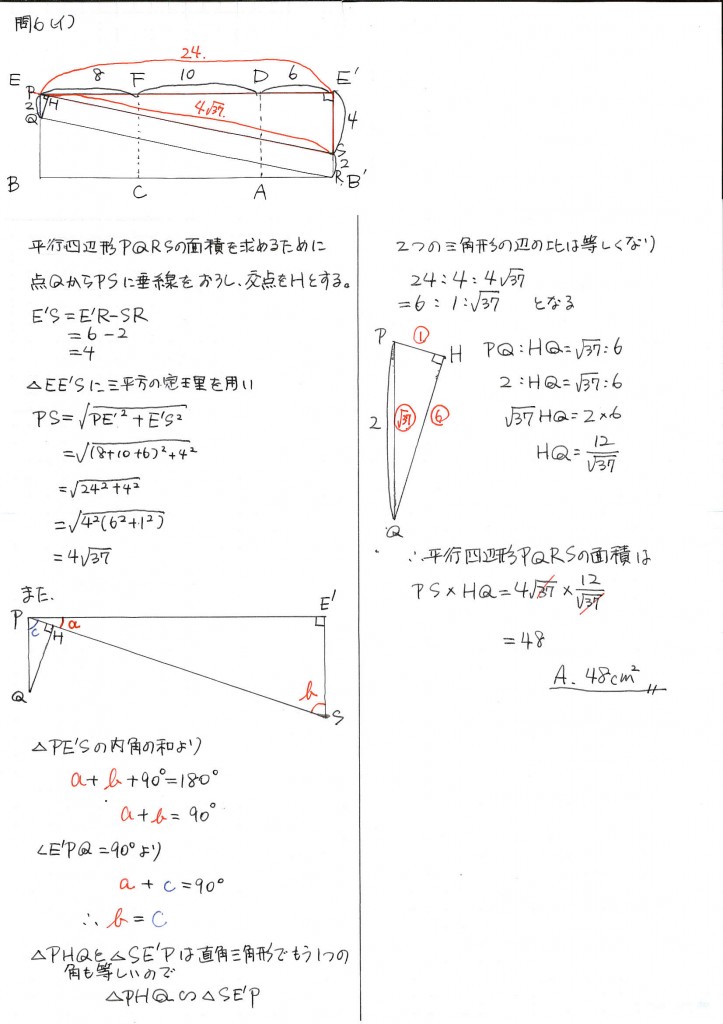 問6(イ)
24.
E 8 F 10 D 6 E'
P
2 H 4√37. 4
Q
S
2
B C A R B'
平行四辺形PQRSの面積を求めるために
点QからPSに垂線をおろし、交点をHとする。
E'S=E'R-SR
=6-2
=4
△EE'Sに三平方の定理を用い
PS=√PE'²+E'S²
=√(8+10+6)²+4²
=√24²+4²
=√4²(6²+1²)
=4√37
また、
P E'
c H a
Q
b S
△PE'Sの内角の和より
a+b+90°=180°
a+b=90°
∠E'PQ=90°より
a+c=90°
∴b=c
△PHQと△SE'Pは直角三角形でもう1つの
角も等しいので
△PHQ∽△SE'P
2つの三角形の辺の比は等しくなり
24:4:4√37
=6:1:√37 となる
P ① H
2 √37 ⑥
Q
PQ:HQ=√37:6
2:HQ=√37:6
√37HQ=2×6
HQ=12/√37
∴平行四辺形PQRSの面積は
PS×HQ=4√37×12/√37
=48
A. 48cm²